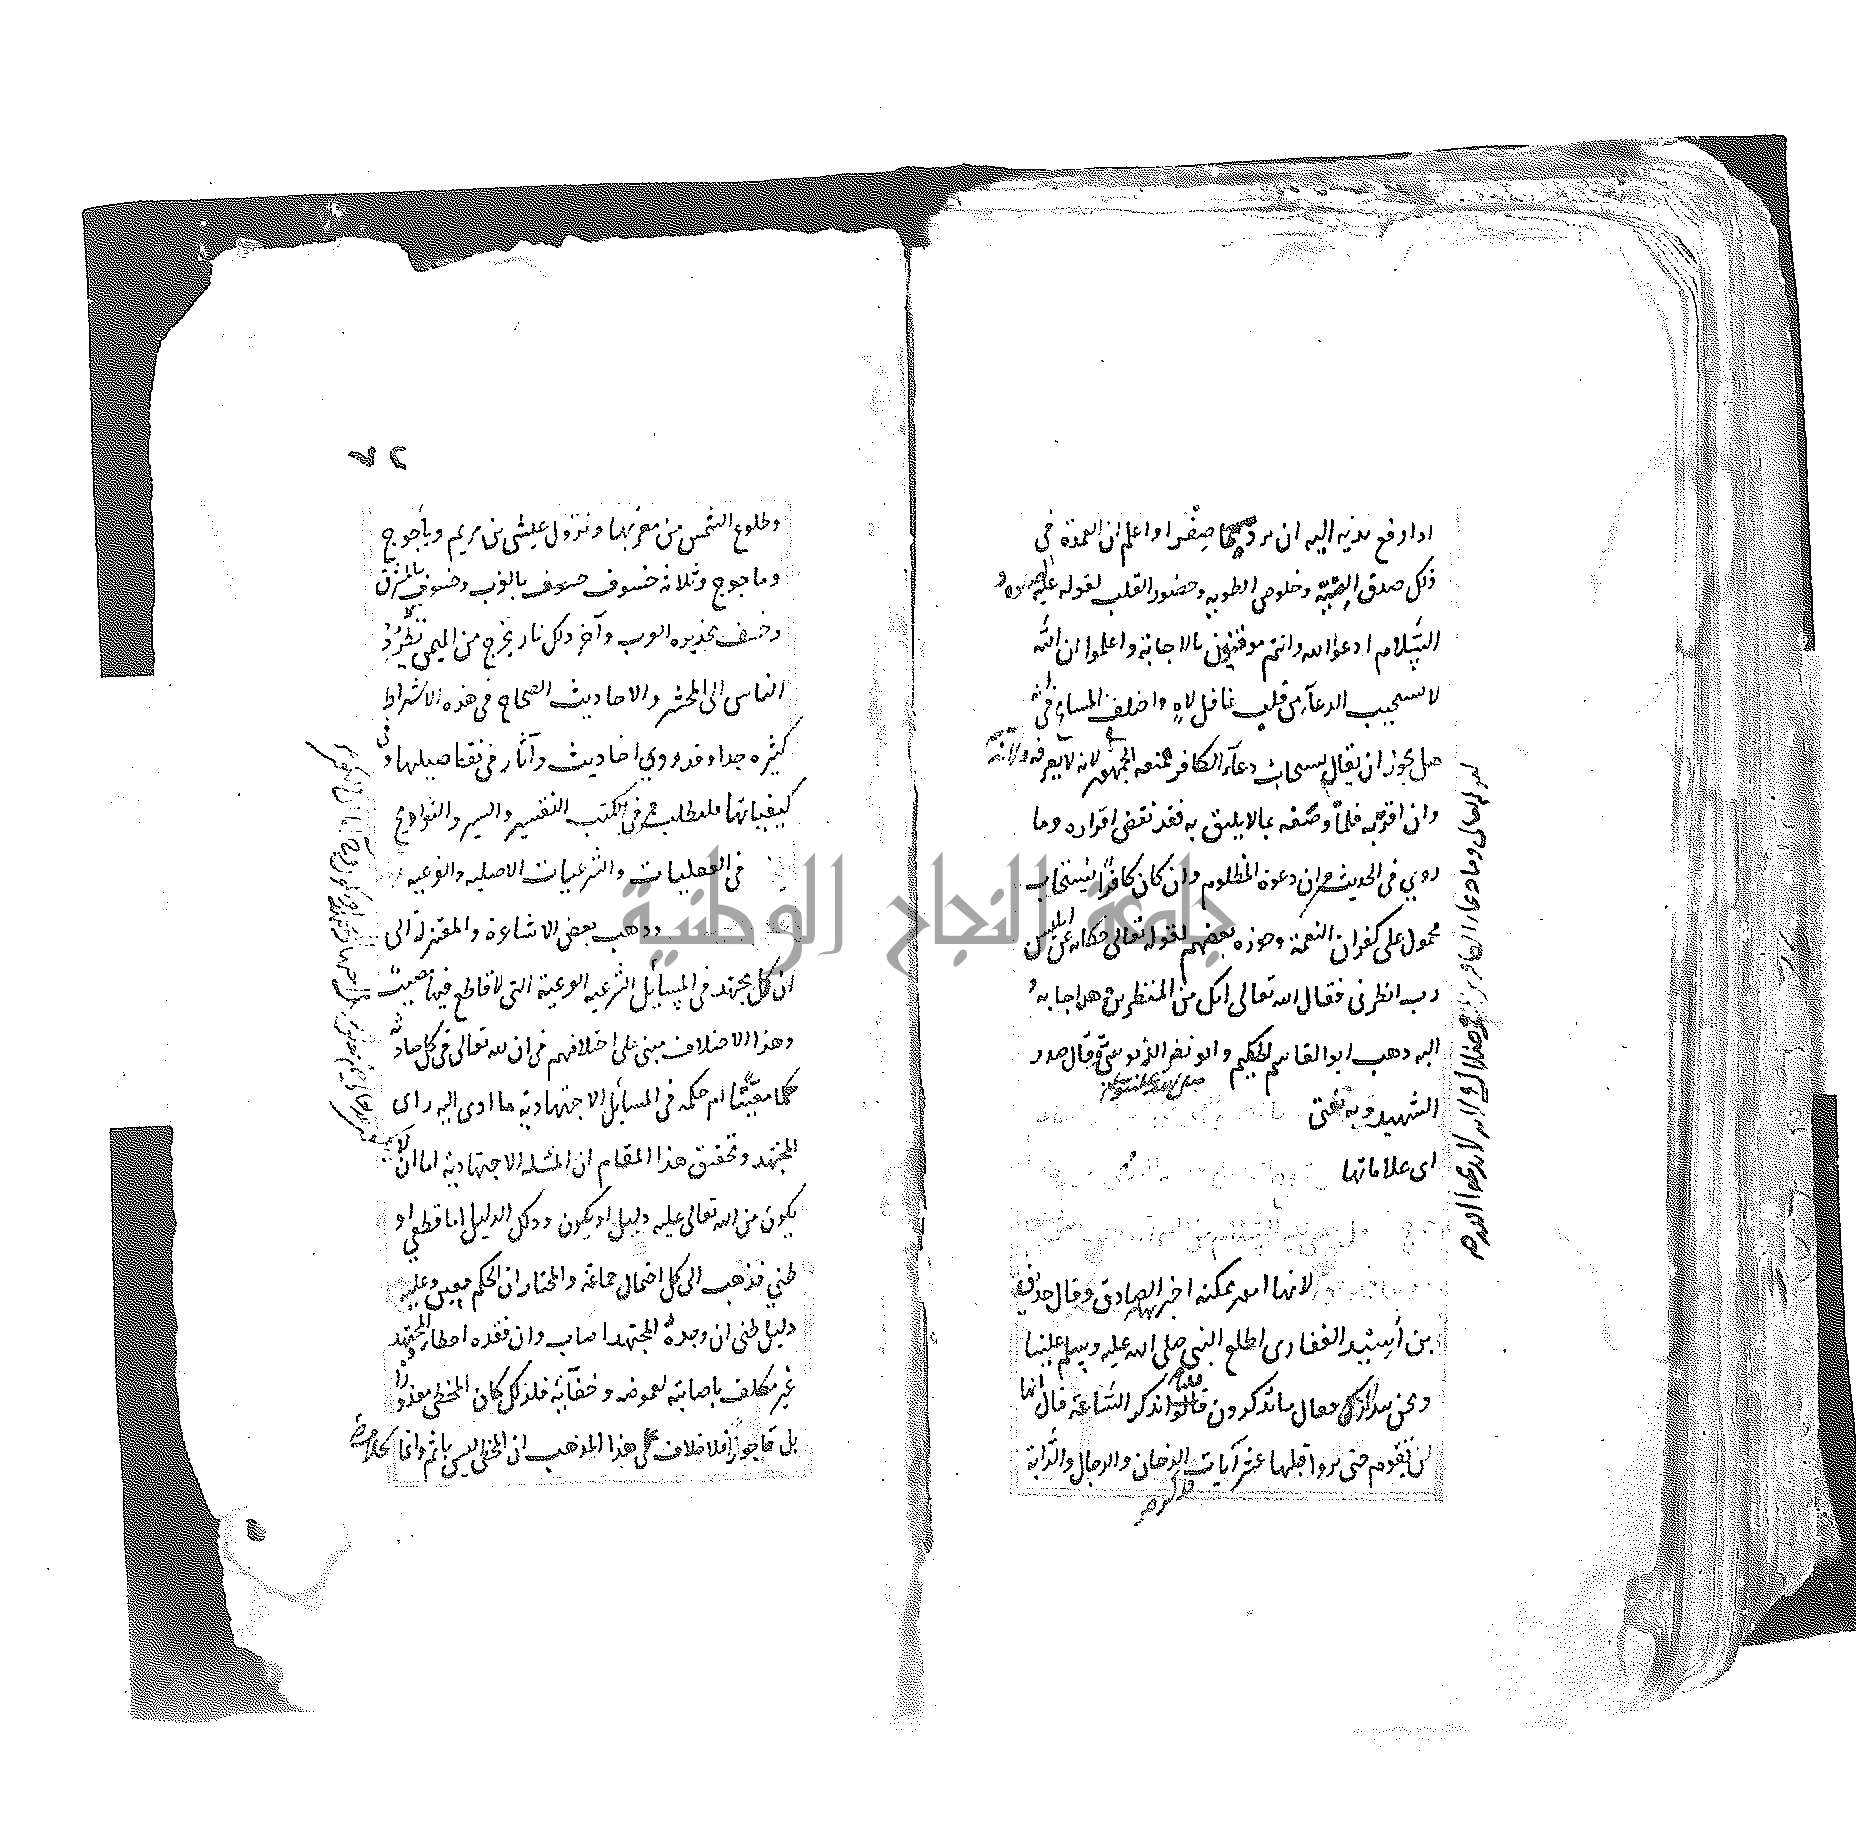 اذا رفع يديه اليه ان يردهما صِفْرا واعلم ان العمدة في
ذلك صدق النيّة وخلوص الطوية وحضور القلب لقوله عليه الصلوة و
السَّلام ادعوا الله وانتم موقنون بالاجابة واعلموا ان الله
لا يستجيب الدعاء من قلب غافل لاهٍ واختلف المشايخ في انه
هل يجوز ان يقال يستجاب دعاء الكافر فمنعه الجمهور لانه لا يعرفه ولانه
وان اقر به فلما وصفه بما لا يليق به فقد نقض اقراره وما
روي في الحديث من ان دعوة المظلوم وان كان كافرًا يستجاب
محمول على كفران النعمة وجوزه بعضهم لقوله تعالى حكاية عن ابليس
رب انظرني فقال الله تعالى انك من المنظرين وهذا اجابة و
اليه ذهب ابو القاسم الحكيم وابو نصر الدبوسي وقال صدر
الشهيد وبه نفتى
اى علاماتها
لانها امور ممكنة اخبر بها الصادق وقال حذيفة
بن أَسِيْد الغفارى اطلع النبى صلى الله عليه وسلم علينا
ونحن نتذاكر فقال ما تذكرون قلنا نذكر السَّاعة قال انها
لن تقوم حتى تروا قبلها عشر آيات الدخان والدجال والدَّابة
٧٢
وطلوع الشمس من مغربها ونزول عيسى بن مريم ويأجوج
وماجوج وثلاثة خسوف خسوف بالمشرق وخسوف بالغرب
وخسف بجزيرة العرب وآخر ذلك نار تخرج من اليمن تَطْرُدُ
الناس الى المحشر والاحاديث الصحاح في هذه الاشراط
كثيرة جدا وقد روي احاديث وآثار في تفاصيلها و
كيفياتها فليطلب من كتب التفسير والسير والتواريخ
في العقليات والشرعيات الاصلية والفرعية
وذهب بعض الاشاعرة والمعتزلة الى
ان كل مجتهد في المسايل الشرعية الفرعية التى لا قاطع فيها مصيبٌ
وهذا الاختلاف مبنى على اختلافهم في ان لله تعالى في كل حادثة
حكما معيَّنًا ام حكمه في المسائل الاجتهادية ما ادى اليه راى
المجتهد وتحقيق هذا المقام ان المسئلة الاجتهادية اما ان لا
يكون من الله تعالى عليه دليل او يكون وذلك الدليل اما قطعي او
ظني فذهب الى كل احتمال جماعة والمختار ان الحكم معين وعليه
دليل ظنى ان وجده المجتهد اصاب وان فقده اخطأ والمجتهد
غير مكلف باصابته لغموضه وخفائه فلذلك كان المخطى معذورا
بل مأجورا فلا خلاف على هذا المذهب ان المخطى ليس باثم وانما
جامعة النجاح الوطنية